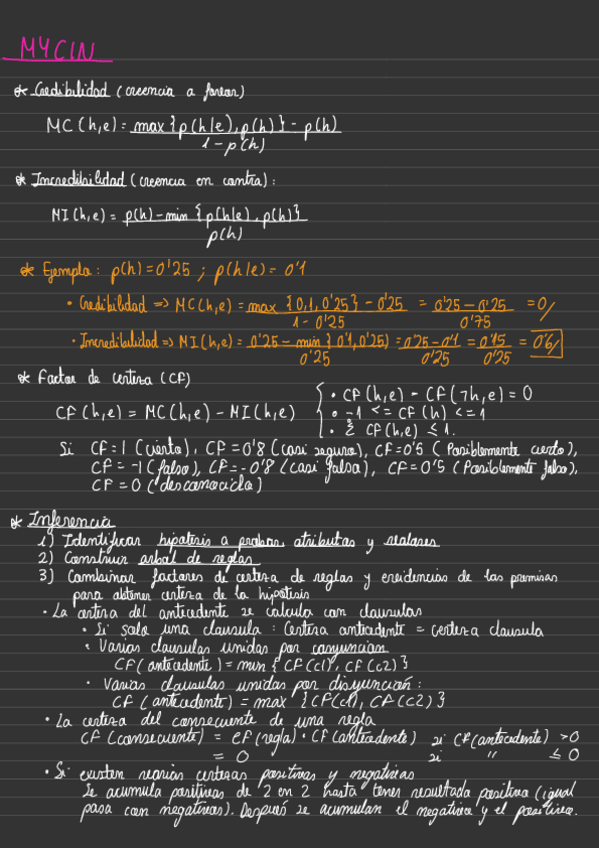 MYCIN
* Credibilidad (creencia a favor)
MC (h,e) = max {p(h|e), p(h)} - p(h)
1 - p(h)
* Incredibilidad (creencia en contra):
MI (h,e) = p(h) - min {p(h|e), p(h)}
p(h)
* Ejemplo: p(h) = 0'25 ; p(h|e) = 0'1
• Credibilidad => MC (h,e) = max {0,1, 0'25} - 0'25 = 0'25 - 0'25 = 0/
1 - 0'25 0'75
• Incredibilidad => MI (h,e) = 0'25 - min {0'1, 0'25} = 0'25 - 0'1 = 0'15 = 0'6/
0'25 0'25 0'25
* Factor de certeza (CF)
CF (h,e) = MC (h,e) - MI (h,e)
• CF (h,e) - CF (¬h,e) = 0
• -1 <= CF (h) <= 1
• Σ CF (h,e) ≤ 1.
Si CF = 1 (cierto), CF = 0'8 (casi seguro), CF = 0'5 (Posiblemente cierto),
CF = -1 (falso), CF = -0'8 (casi falso), CF = 0'5 (Posiblemente falso),
CF = 0 (desconocido)
* Inferencia
1) Identificar hipotesis a probar, atributos y valores
2) Construir arbol de reglas
3) Combinar factores de certeza de reglas y evidencias de las premisas
para obtener certeza de la hipotesis
• La certeza del antecedente se calcula con clausulas
• Si solo una clausula : Certeza antecedente = certeza clausula
• Varias clausulas unidas por conjuncion
CF (antecedente) = min {CF (cl), CF (c2)}
• Varias clausulas unidas por disyuncion:
CF (antecedente) = max {CF (cl), CF (c2)}
• La certeza del consecuente de una regla
CF (consecuente) = CF (regla) · CF (antecedente) si CF (antecedente) > 0
= 0 si " ≤ 0
• Si existen varias certezas positivas y negativas
Se acumula positivas de 2 en 2 hasta tener resultado positivo (igual
pasa con negativas). Después se acumulan el negativo y el positivo.